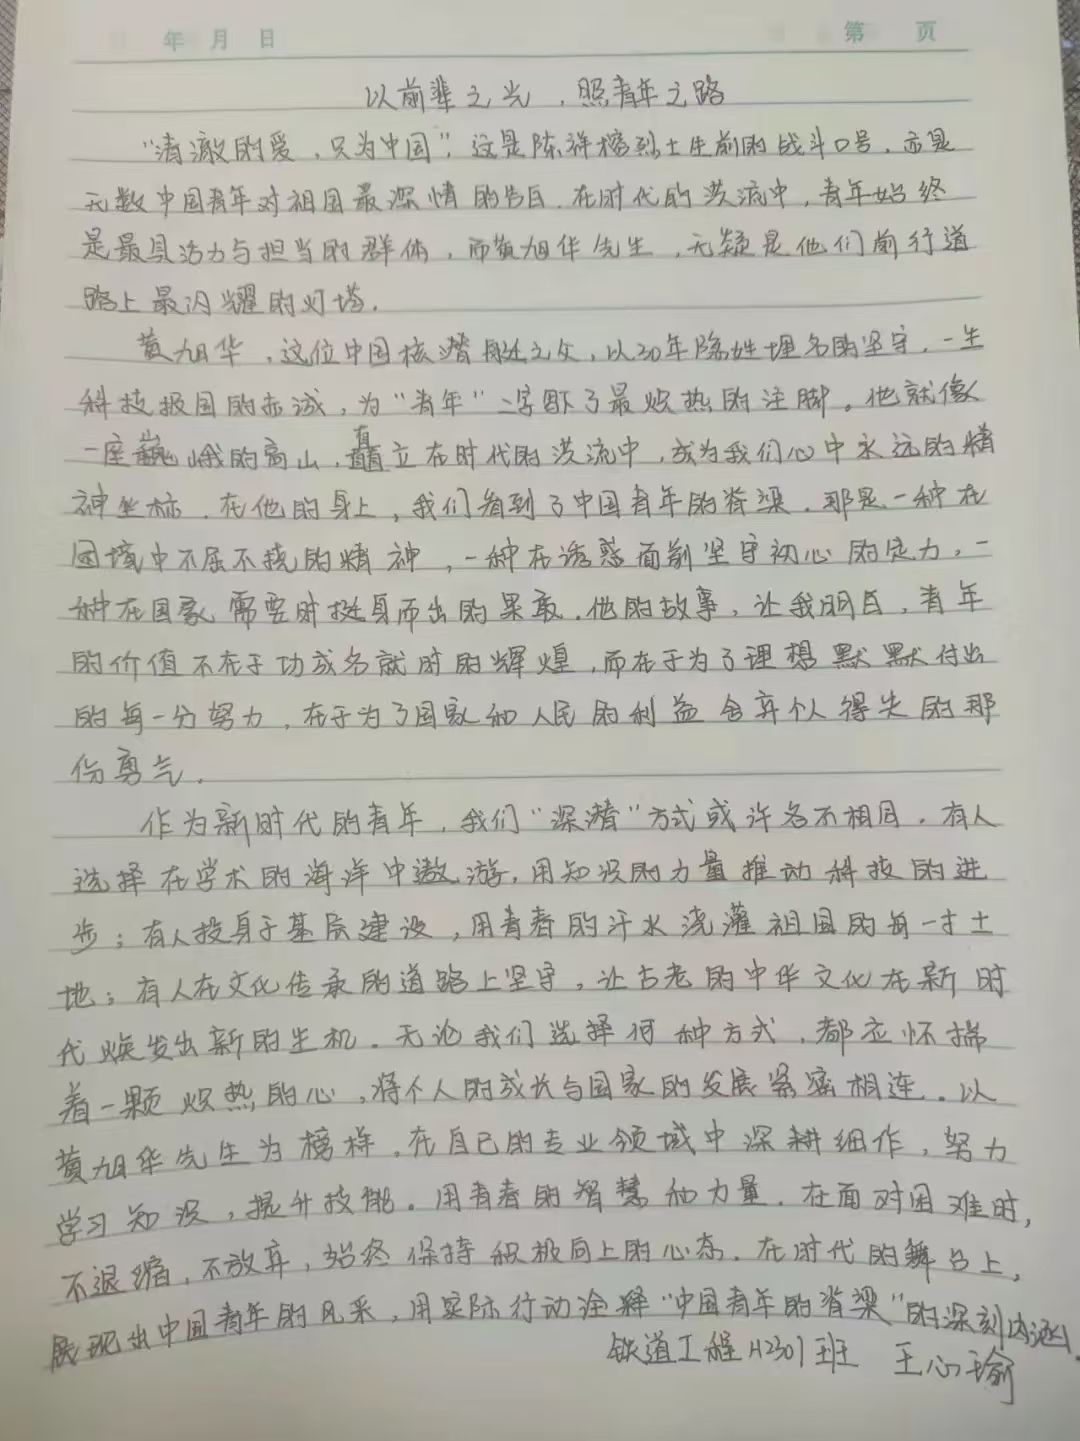 年 月 日 第 页
以前辈之光，照青年之路
“清澈的爱，只为中国”，这是陈祥榕烈士生前的战斗口号，亦是
无数中国青年对祖国最深情的告白．在时代的洪流中，青年始终
是最具活力与担当的群体，而黄旭华先生，无疑是他们前行道
路上最闪耀的灯塔．
黄旭华，这位中国核潜艇之父，以30年隐姓埋名的坚守，一生
科技报国的赤诚，为“青年”二字留下了最炽热的注脚。他就像
一座巍峨的高山，矗立在时代的洪流中，成为我们心中永远的精
神坐标．在他的身上，我们看到了中国青年的脊梁．那是一种在
困境中不屈不挠的精神，一种在诱惑面前坚守初心的定力，一
种在国家需要时挺身而出的果敢．他的故事，让我明白，青年
的价值不在于功成名就时的辉煌，而在于为了理想默默付出
的每一分努力，在于为了国家和人民的利益舍弃个人得失的那
份勇气．
作为新时代的青年，我们“深潜”方式或许各不相同．有人
选择在学术的海洋中遨游，用知识的力量推动科技的进
步；有人投身于基层建设，用青春的汗水浇灌祖国的每一寸土
地；有人在文化传承的道路上坚守，让古老的中华文化在新时
代焕发出新的生机．无论我们选择何种方式，都应怀揣
着一颗炽热的心，将个人的成长与国家的发展紧密相连．以
黄旭华先生为榜样．在自己的专业领域中深耕细作，努力
学习知识，提升技能。用青春的智慧和力量．在面对困难时，
不退缩，不放弃，始终保持积极向上的心态．在时代的舞台上，
展现出中国青年的风采，用实际行动诠释“中国青年的脊梁”的深刻内涵．
铁道工程H2301班 王心瑜